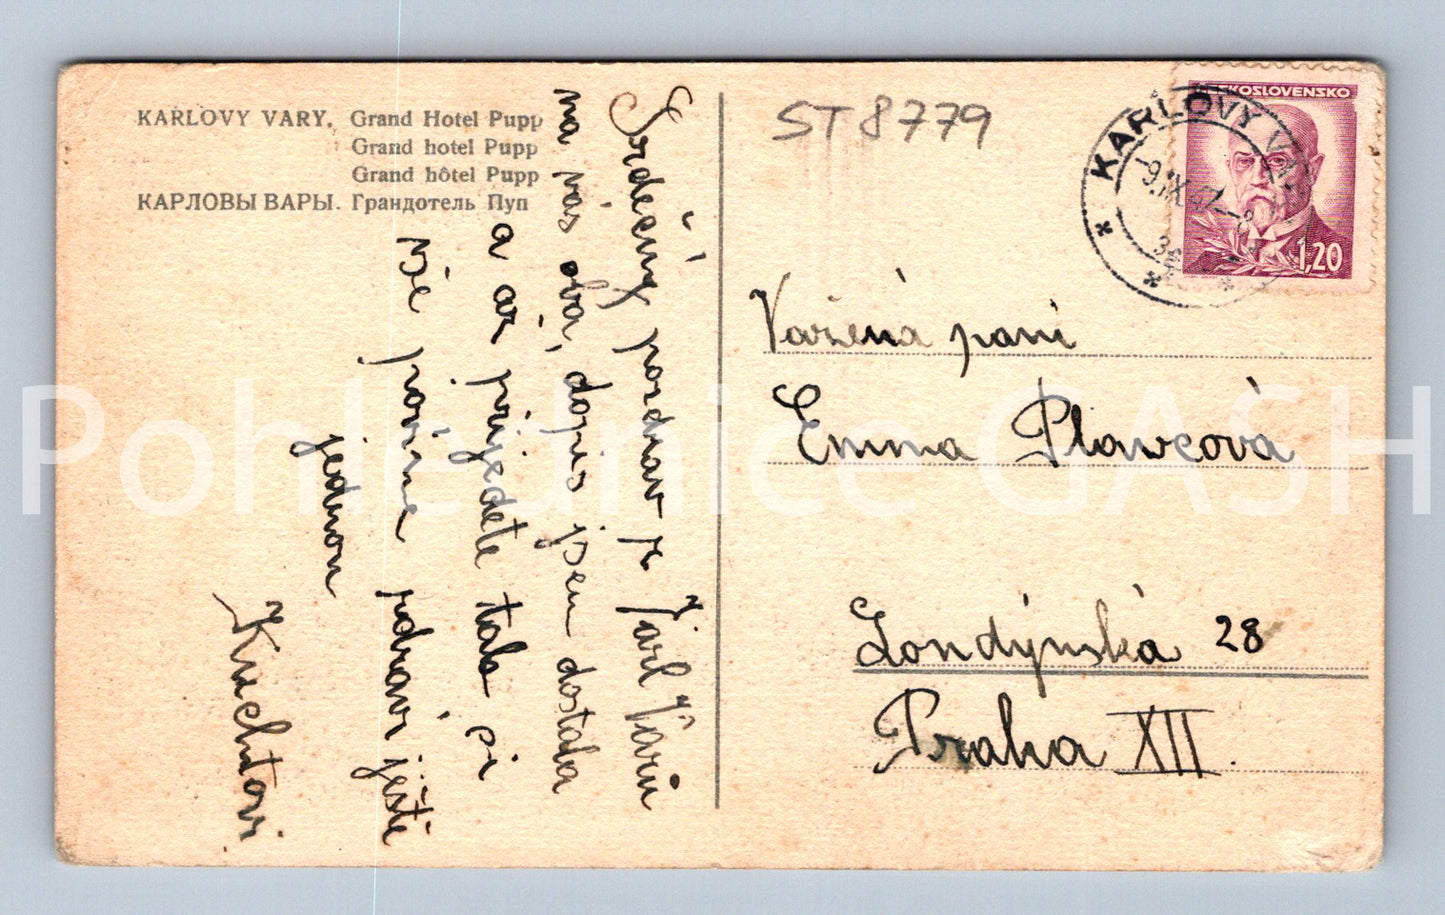 KARLOVY VARY. Grand Hotel Pupp
Grand hotel Pupp
Grand hôtel Pupp
КАРЛОВЫ ВАРЫ. Грандотель Пуп
Srdečný pozdrav z Karl Varů
na vás oba, dopis jsem dostala
a až přijedete tak si
vše povíme zdraví ještě
jednou
Kuchtovi.
ST 8779
ČESKOSLOVENSKO
1,20
KARLOVY VARY
9.IX.47-8
Vážená paní
Emma Plavcová
Londýnská 28
Praha XII.
Pohlednice GASH